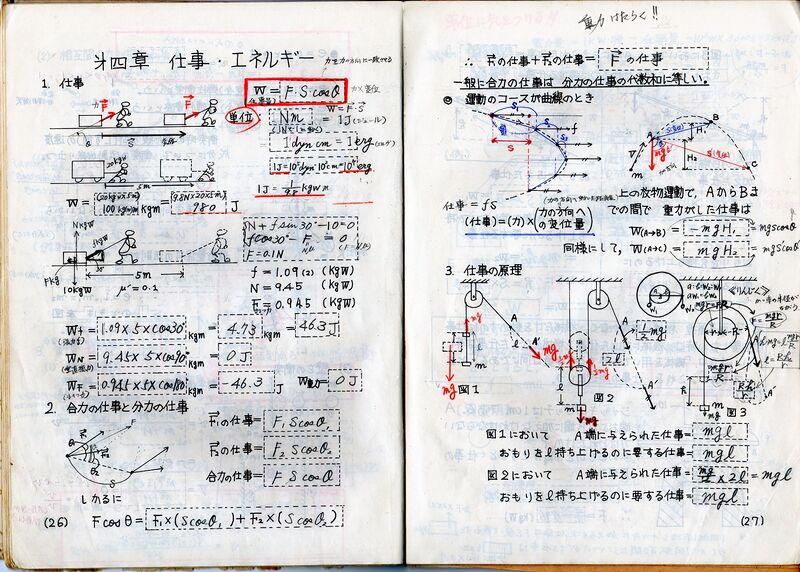 第四章 仕事・エネルギー
1. 仕事
W = F·S cosθ
W=F·S
単位
Nm = 1J(ジュール)
1 dyn cm = 1 erg(エルグ)
20kgW
5m
W = (20kgw×5m) 100 kgwm kgm = (9.8N×20×5m) 980 J
1J = 1/9.8 kgwm
NkgW
Fkg
10kgW
5m
μ'=0.1
N + f sin30°-10=0
f cos30°- F = 0
F = 0.1N
f = 1.09(2) (kgW)
N = 9.45 (kgW)
F = 0.945 (kgW)
Wf = 1.09×5×cos30° kgm = 4.73 kgm = 46.3 J
WN = 9.45×5×cos90° kgm = 0 J
WF = 0.945×5×cos180° kgm = -46.3 J
= 0 J
2. 合力の仕事と分力の仕事
F₁の仕事 = F₁ S cosθ₁
F₂の仕事 = F₂ S cosθ₂
合力の仕事 = F S cosθ
しかるに
(26) F cosθ = F₁×(S cosθ₁)+F₂×(S cosθ₂)
重力はたらく!!
∴ F₁の仕事+F₂の仕事 = Fの仕事
一般に合力の仕事は 分力の仕事の代数和に等しい。
◎ 運動のコースが曲線のとき
仕事 = fS
(仕事)=(力)×(力の方向への変位量)
A
B
C
H₁
H₂
mg
上の放物運動で, AからBまでの間で 重力がした仕事は
W(A→B) = -mgH₁ = mgScosθ
同様にして, W(A→C) = mgH₂ = mgScosθ
3. 仕事の原理
図1
図2
図3
図1において A端に与えられた仕事 = mgl
おもりをl持ち上げるのに要する仕事 = mgl
図2において A端に与えられた仕事 = mg/2 × 2l = mgl
おもりをl持ち上げるのに要する仕事 = mgl
(27)